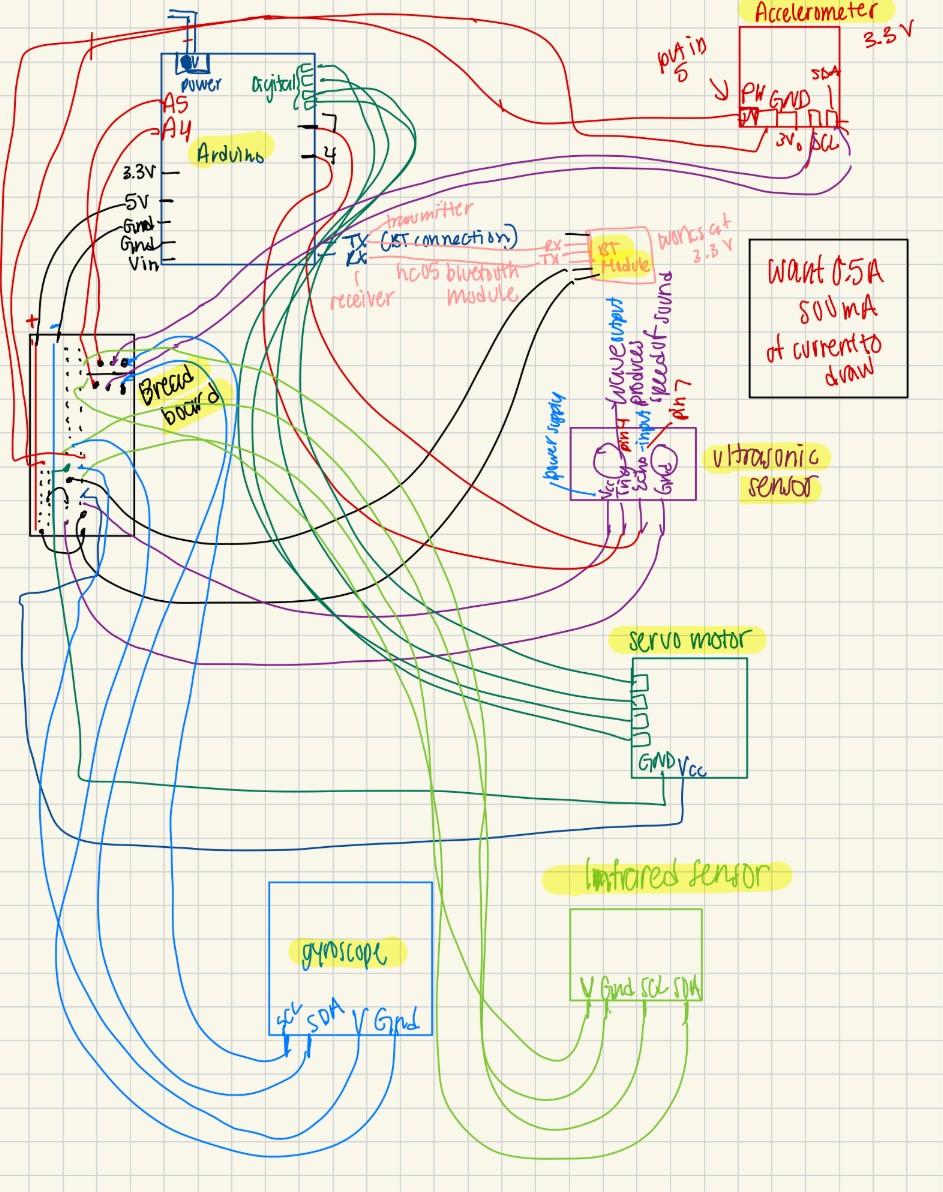 Accelerometer
3.3 V
put in
5
SDA
PH GND
3V₀ SCL
V
power
Digital
A5
A4
7
4
Arduino
3.3V
5V
Gnd
Gnd
Vin
transmitter
TX (BT connection)
RX
receiver
hc05 bluetooth
module
RX
TX
BT
Module
works at
3.3 V
want 0.5A
500mA
of current to
draw
+
-
Bread
board
power supply
pin 4 - wave output
produces
speed of sound
- input
pin 7
Vcc
Trig
Echo
Gnd
ultrasonic
sensor
servo motor
GND Vcc
Infrared sensor
V Gnd SCL SDA
gyroscope
SCL SDA V Gnd